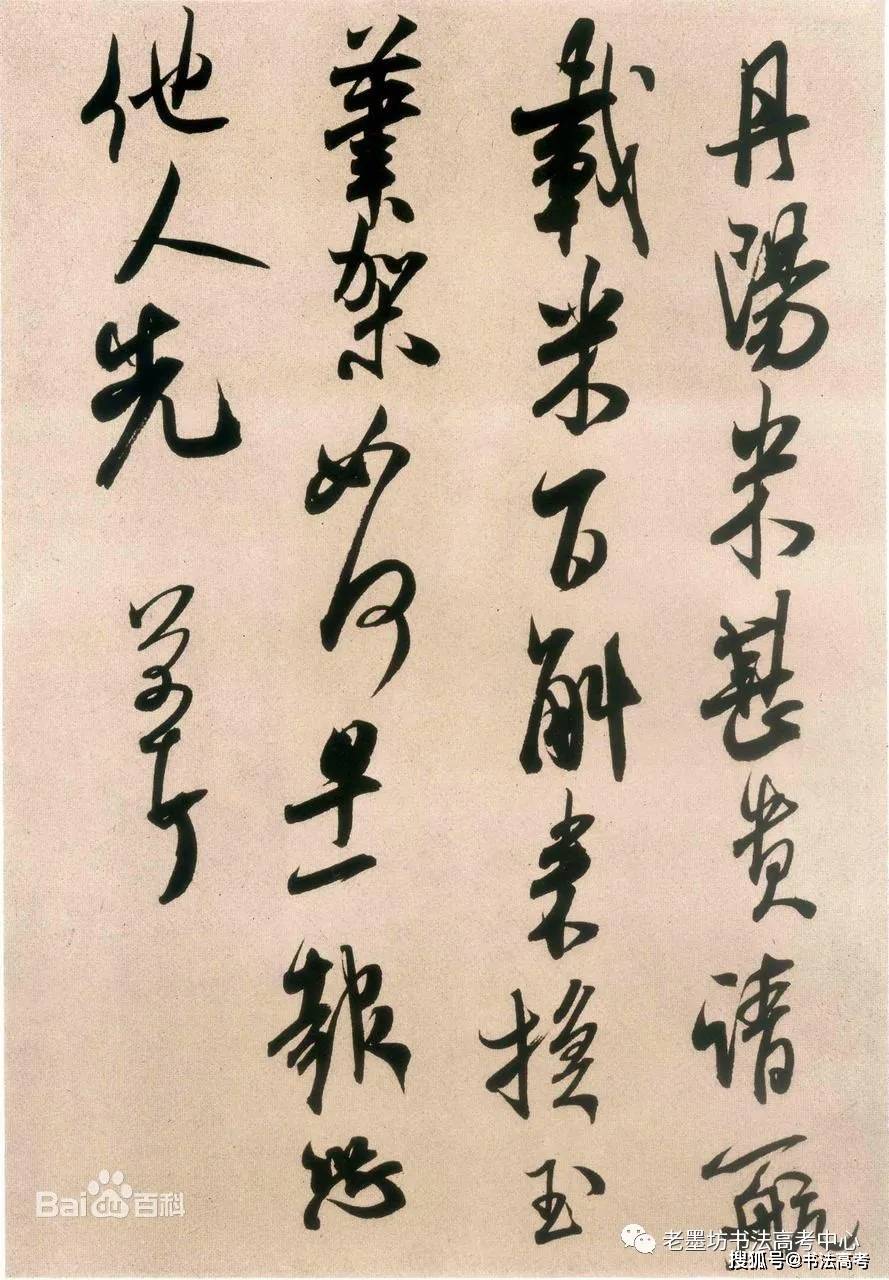 丹陽米甚貴請一航
載米百斛來換玉
筆架如何早一報恐
他人先芾頓首
Baidu百科
老墨坊书法高考中心
搜狐号@书法高考